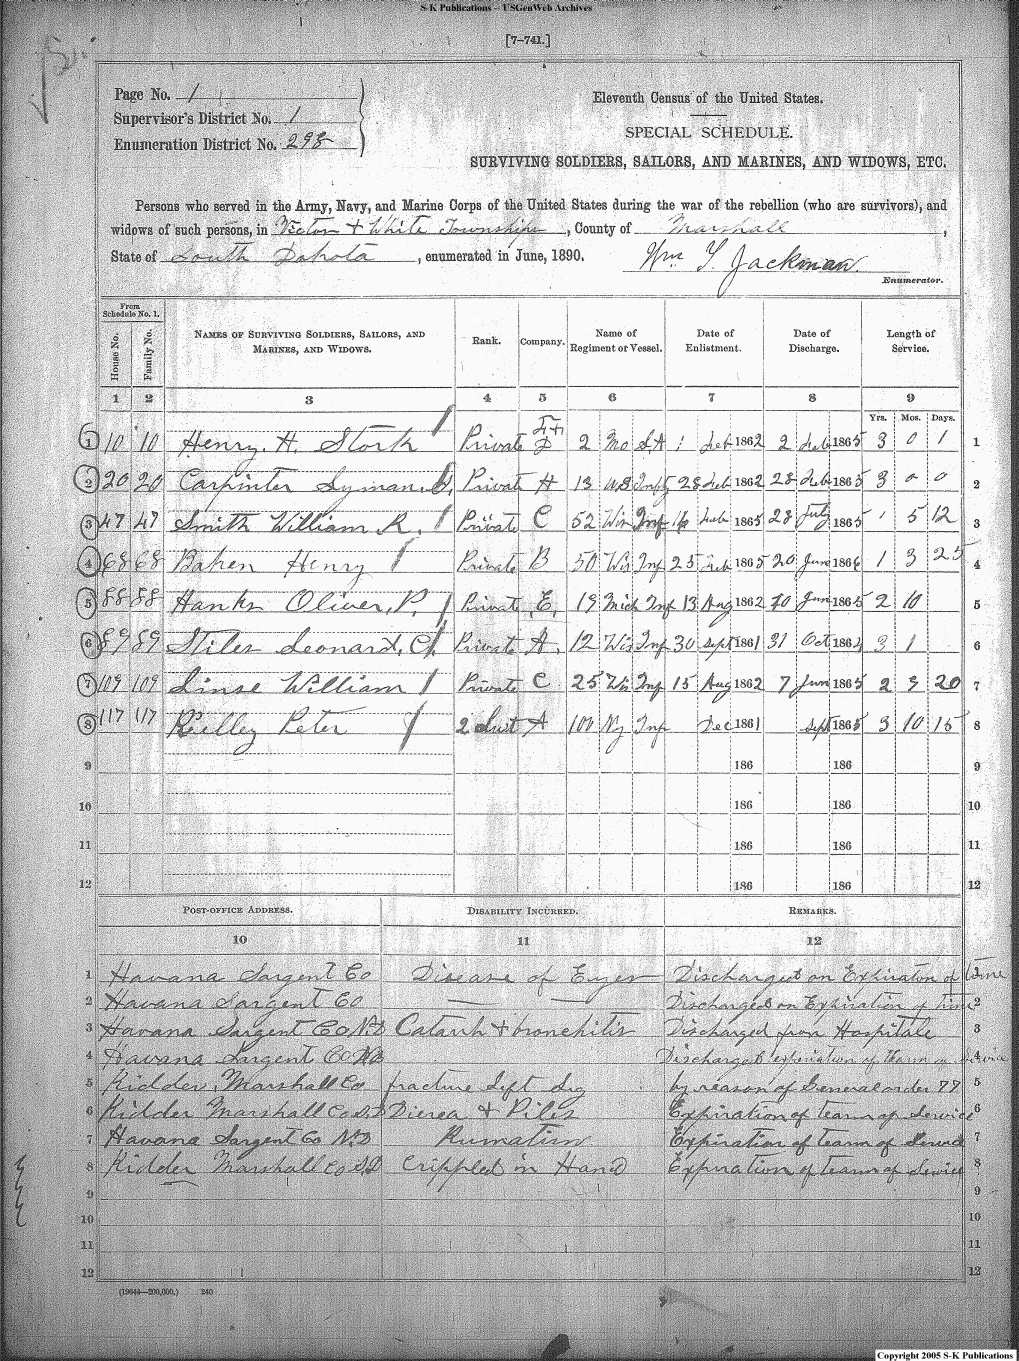 S-K Publications – USGenWeb Archives
[7–741.]
Page No. 1
Supervisor's District No. 1
Enumeration District No. 298
Eleventh Census of the United States.
SPECIAL SCHEDULE.
SURVIVING SOLDIERS, SAILORS, AND MARINES, AND WIDOWS, ETC.
Persons who served in the Army, Navy, and Marine Corps of the United States during the war of the rebellion (who are survivors), and
widows of such persons, in Victor + White Townships, County of Marshall,
State of South Dakota, enumerated in June, 1890. Wm Y. Jackman
Enumerator.
From Schedule No. 1.
House No. Family No. NAMES OF SURVIVING SOLDIERS, SAILORS, AND MARINES, AND WIDOWS. Rank. Company. Name of Regiment or Vessel. Date of Enlistment. Date of Discharge. Length of Service.
1 2 3 4 5 6 7 8 9
Yrs. Mos. Days.
1 10 10 Henry. H. Stork Private D 2 Mo 1 Feb 1862 2 Feb 1865 3 0 1 1
2 20 20 Carpinter Lyman. Private H 13 US Inft 28 Feb 1862 28 Feb 1865 3 0 0 2
3 47 47 Smith William R. Private C 52 Wis Inf 16 Feb 1865 28 July 1865 1 5 12 3
4 68 68 Baken Henry Private B 50 Wis Inf 25 Feb 1865 20 June 1866 1 3 25 4
5 88 88 Hanks Oliver, P. Private E. 19 Mich Inf 13 Aug 1862 10 Jun 1865 2 10 5
6 89 89 Stiles Leonard, C. Private A. 12 Wis Inf 30 Sept 1861 31 Oct 1864 3 1 6
7 109 109 Linse William Private C 25 Wis Inf 15 Aug 1862 7 Jun 1865 2 9 20 7
8 117 117 Reilley Peter 2 A 100 Ny Inf Dec 1861 Sept 1865 3 10 15 8
9 186 186 9
10 186 186 10
11 186 186 11
12 186 186 12
POST-OFFICE ADDRESS. DISABILITY INCURRED. REMARKS.
10 11 12
1 Havana Sargent Co Disease of Eyes Discharged on Expiration of time
2 Havana Sargent Co — — Discharged on Expiration of time 2
3 Havana Sargent Co N.D Catarrh + bronchitis Discharged from Hospitale 3
4 Havana Sargent Co ND Discharged expiration of tearm of servis 4
5 Kidder, Marshall Co fracture Lift Lig by reason of General order 77 5
6 Kidder Marshall Co S.D Dierea + Piles Expiration of team of Service 6
7 Havana Sargent Co N.D Rumatism Expiration of team of Servic 7
8 Kidder Marshall Co SD Crippled in Hand Expiration of tearm of Service 8
9 9
10 10
11 11
12 12
(19644—200,000.) 240
Copyright 2005 S-K Publications